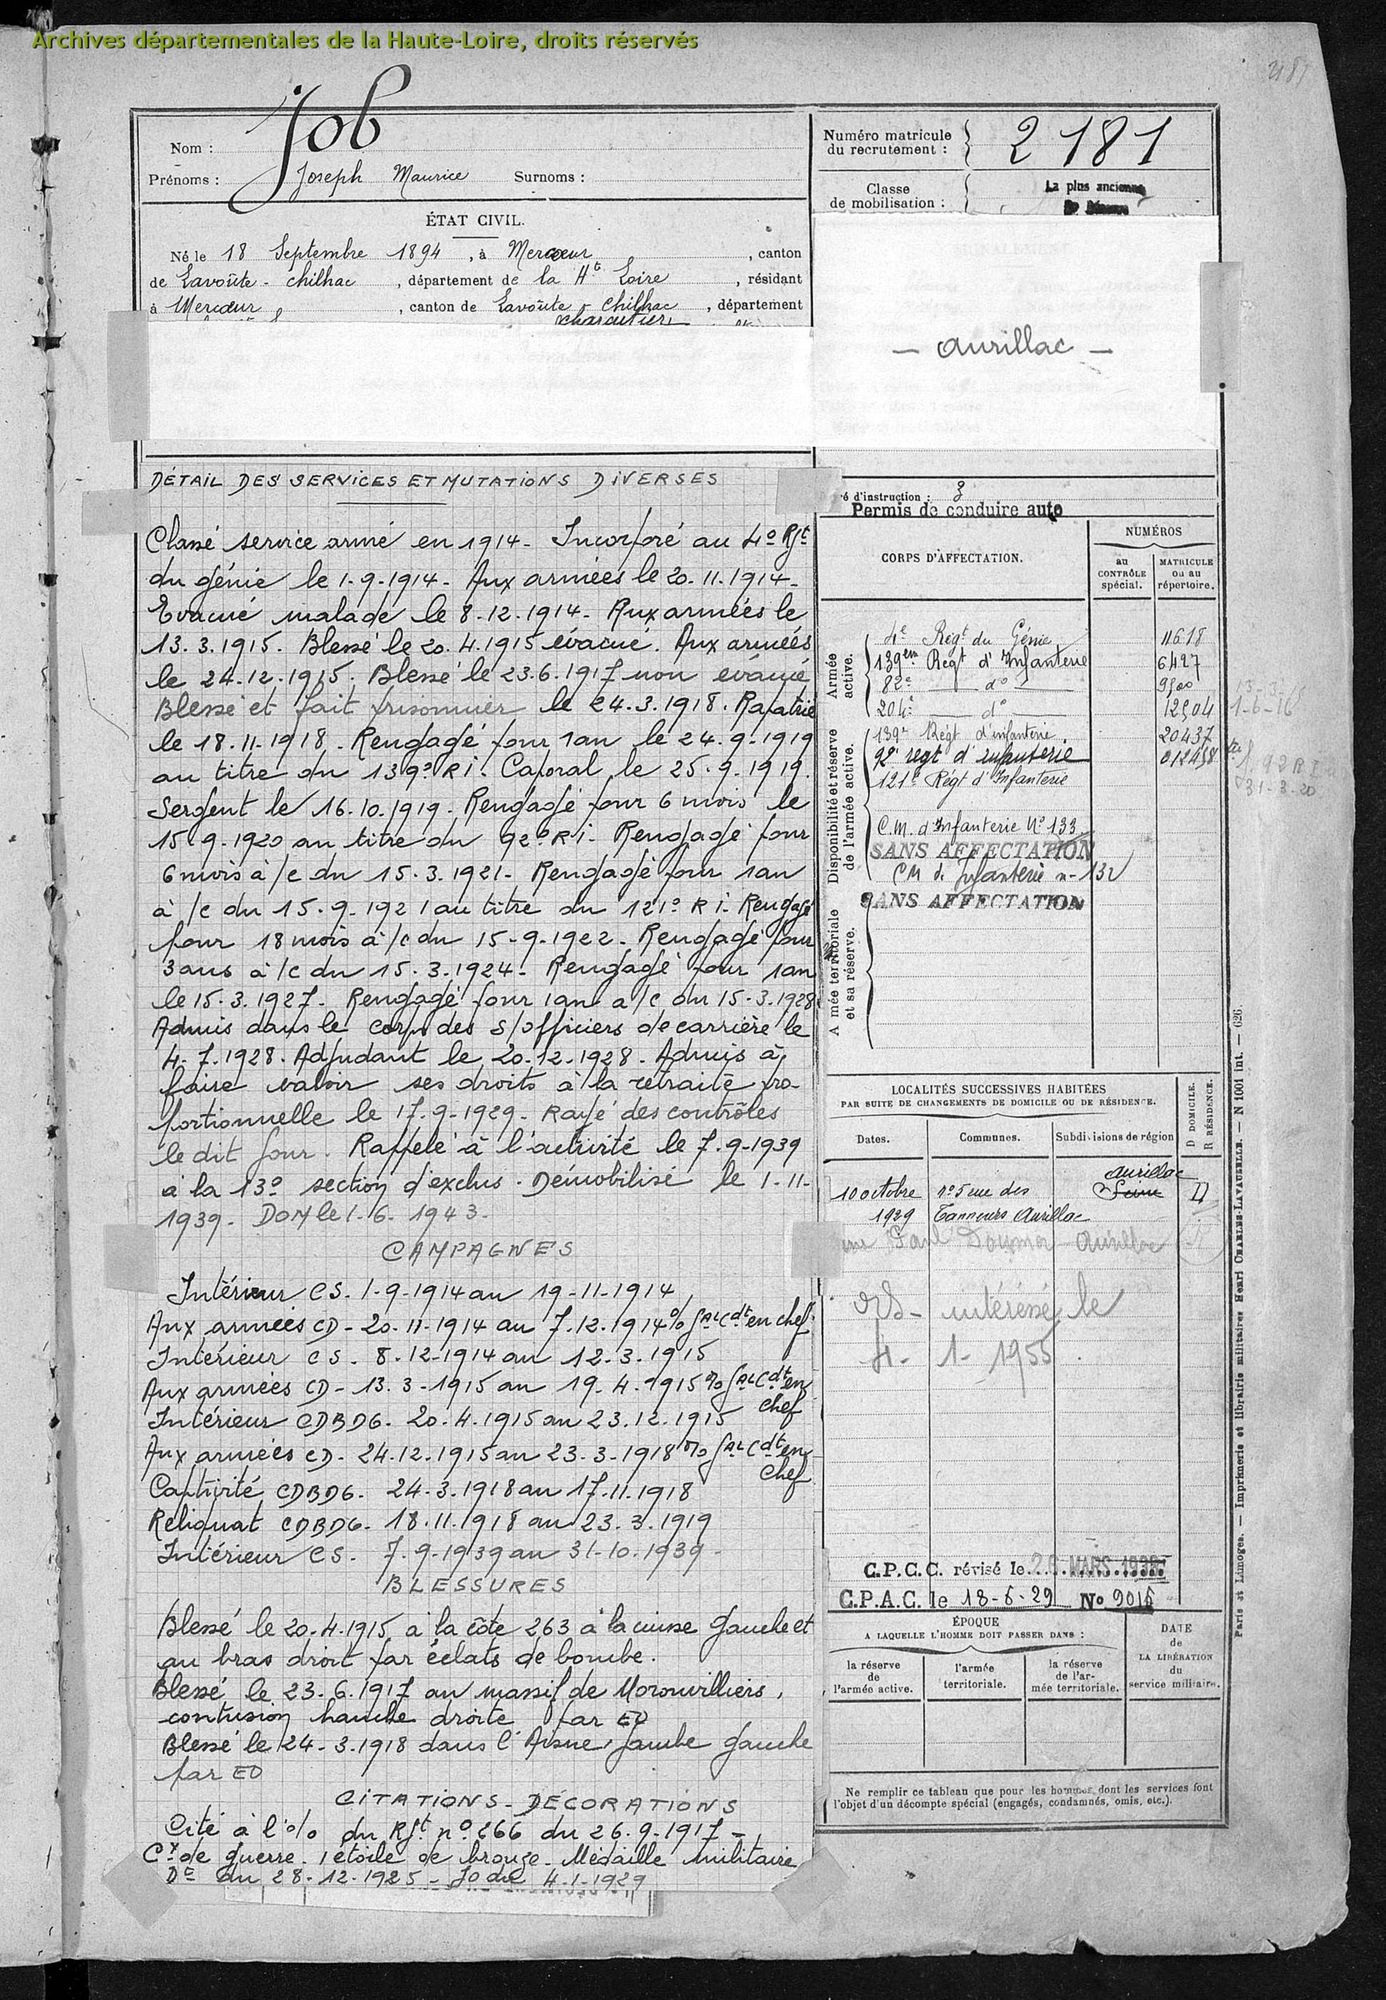 Archives départementales de la Haute-Loire, droits réservés
2181
Nom : Job
Prénoms : Joseph Maurice Surnoms :
ÉTAT CIVIL.
Né le 18 Septembre 1894, à Mercœur, canton
de Lavoûte-Chilhac, département de la Hte Loire, résidant
à Mercœur, canton de Lavoûte-Chilhac, département
charcutier
Numéro matricule du recrutement : 2181
Classe de mobilisation : La plus ancienne
- Aurillac -
DÉTAIL DES SERVICES ET MUTATIONS DIVERSES
Classé service armé en 1914 - Incorporé au 4o Rgt
du génie le 1-9-1914 - Aux armées le 20.11.1914 -
Evacué malade le 8-12.1914 - Aux armées le
13.3.1915. Blessé le 20.4.1915 évacué. Aux armées
le 24-12.1915. Blessé le 23.6.1917 non évacué
Blessé et fait prisonnier le 24.3.1918. Rapatrié
le 18.11.1918. Rengagé pour 1an le 24.9.1919
au titre du 139o RI. Caporal le 25.9.1919.
Sergent le 16.10.1919. Rengagé pour 6 mois le
15.9.1920 au titre du 92o RI. Rengagé pour
6 mois à/c du 15.3.1921 - Rengagé pour 1an
à/c du 15.9.1921 au titre du 121o RI - Rengagé
pour 18 mois à/c du 15-9-1922 - Rengagé pour
3ans à/c du 15.3.1924 - Rengagé pour 1an
le 15.3.1927 - Rengagé pour 1an a/c du 15.3.1928
Admis dans le corps des s/officiers de carrière le
4.7.1928. Adjudant le 20.12.1928. Admis à
faire valoir ses droits à la retraite pro-
portionnelle le 17.9.1929. Rayé des contrôles
le dit jour. Rappelé à l'activité le 7.9.1939
à la 13o section d'exclus. Démobilisé le 1-11-
1939. DOM le 1.6.1943.
CAMPAGNES
Intérieur CS. 1-9-1914 au 19-11-1914
Aux armées CD - 20.11.1914 au 7.12.1914 % GAL Cdt en chef
Intérieur CS. 8-12-1914 au 12.3.1915
Aux armées CD - 13.3.1915 au 19.4.1915 % GAL Cdt en
chef
Intérieur CDBDG. 20.4.1915 au 23.12.1915
Aux armées CD. 24.12.1915 au 23.3.1918 % GAL Cdt en
chef
Captivité CDBDG. 24.3.1918 au 17.11.1918
Reliquat CDBDG. 18.11.1918 au 23.3.1919
Intérieur CS. 7.9.1939 au 31-10.1939 -
BLESSURES
Blessé le 20.4.1915 à la côte 263 à la cuisse gauche et
au bras droit par éclats de bombe.
Blessé le 23.6.1917 au massif de Moronvilliers,
contusion hanche droite par EO
Blessé le 24-3.1918 dans l'Aisne, jambe gauche
par EO
CITATIONS - DÉCORATIONS
Cité à l'% du Rgt no 266 du 26.9.1917 -
Cx de guerre 1 étoile de bronze - Médaille militaire
Dt du 28.12.1925 - Jo du 4-1-1929
Degré d'instruction : 3
Permis de conduire auto
CORPS D'AFFECTATION.
NUMÉROS
au CONTRÔLE spécial.
MATRICULE ou au répertoire.
Armée active.
4e Régt du Génie 11618
139em Régt d'Infanterie 6427
82e do 9500
204e do 12504
1-6-16
Disponibilité et réserve de l'armée active.
139e Régt d'infanterie 20437
92e regt d'infanterie 012458
31-3-20
121e Régt d'Infanterie
C.M. d'Infanterie No 133
SANS AFFECTATION
CM d'Infanterie n- 132
SANS AFFECTATION
Armée territoriale et sa réserve.
LOCALITÉS SUCCESSIVES HABITÉES
PAR SUITE DE CHANGEMENTS DE DOMICILE OU DE RÉSIDENCE.
Dates. Communes. Subdivisions de région
D DOMICILE. R RÉSIDENCE.
10 octobre 1929 no 5 rue des Tanneurs Aurillac Aurillac D
rue Paul Doumer Aurillac R
intéressé le
4-1-1955
C.P.C.C. révisé le 20 MARS
C.P.A.C. le 18-6-29 No 9015
ÉPOQUE
A LAQUELLE L'HOMME DOIT PASSER DANS :
la réserve de l'armée active.
l'armée territoriale.
la réserve de l'armée territoriale.
DATE de LA LIBÉRATION du service militaire.
Ne remplir ce tableau que pour les hommes dont les services font
l'objet d'un décompte spécial (engagés, condamnés, omis, etc.).
Paris et Limoges. — Imprimerie et librairie militaires Henri CHARLES-LAVAUZELLE. — N 1001 int. — 626